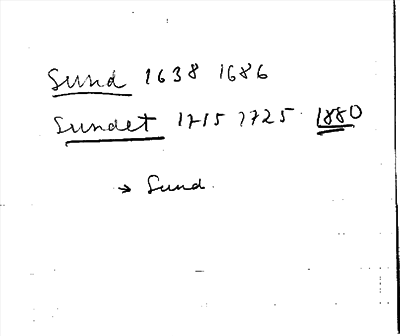 Sund 1638 1686
Sundet 1715 1725 1880
→ Sund.